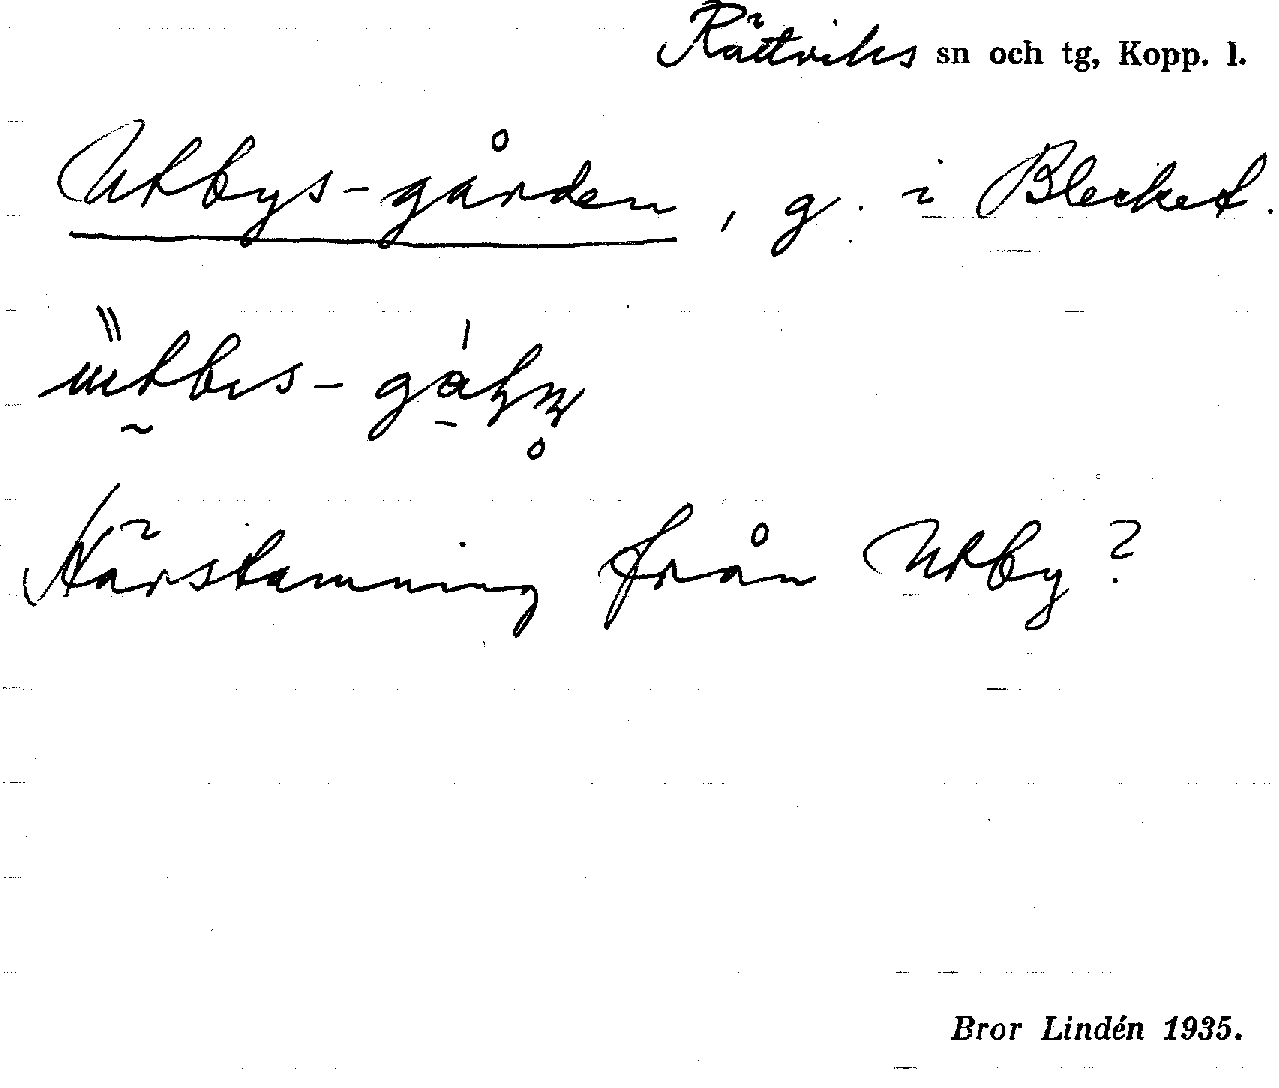 Rättviks sn och tg, Kopp. l.
Utbys-gården, g. i Blecket.
Härstamning från Utby?
Bror Lindén 1935.